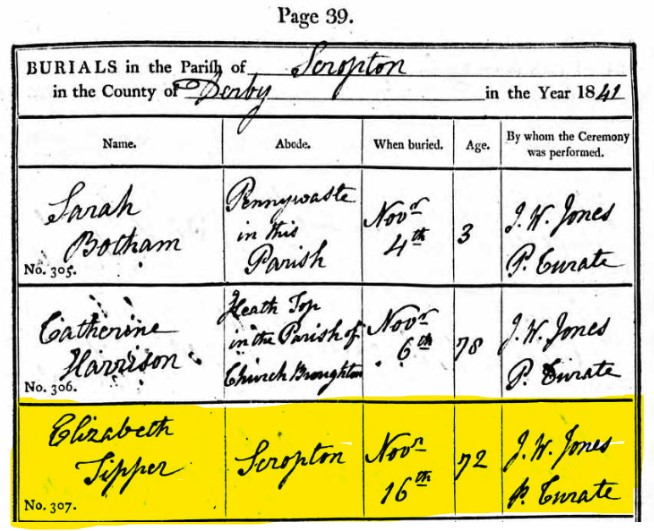 Page 39.
BURIALS in the Parish of Scropton
in the County of Derby in the Year 1841
Name. Abode. When buried. Age. By whom the Ceremony was performed.
Sarah
Botham
No. 305.
Pennywaste
in this
Parish
Novr
4th
3
J. W. Jones
P. Curate
Catherine
Harrison
No. 306.
Heath Top
in the Parish of
Church Broughton
Novr
6th
78
J. W. Jones
P. Curate
Elizabeth
Tipper
No. 307.
Scropton
Novr
16th
72
J. W. Jones
P. Curate